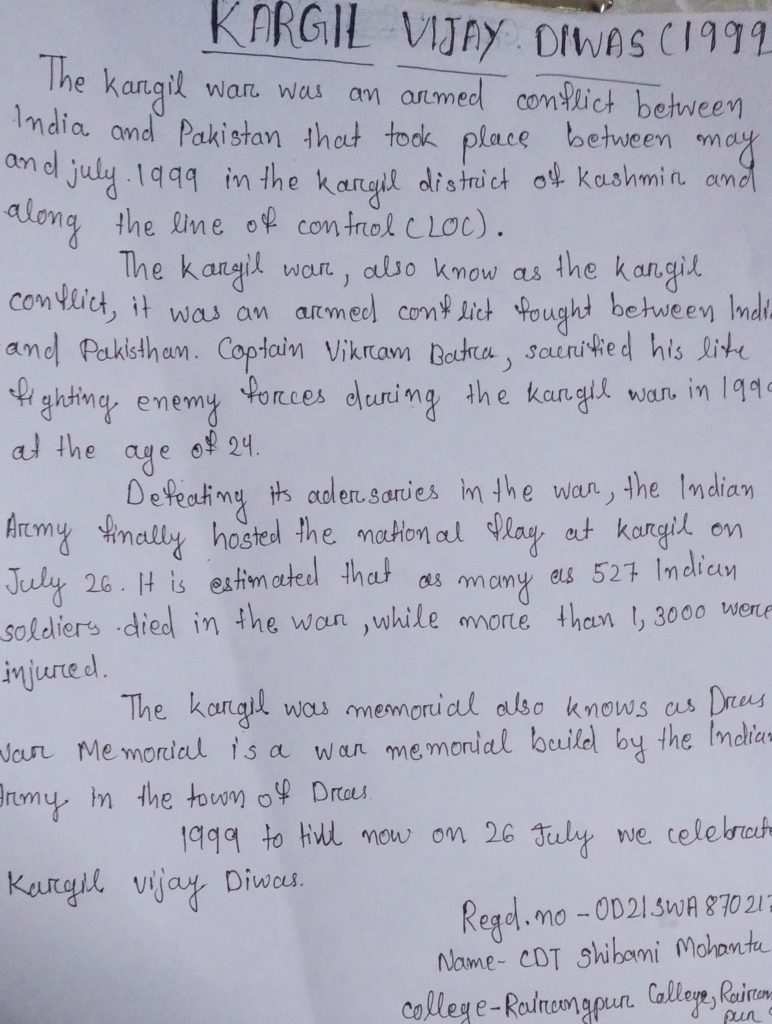 KARGIL VIJAY DIWAS (1999
The kargil war was an armed conflict between
India and Pakistan that took place between may
and july. 1999 in the kargil district of Kashmir and
along the line of control (LOC).
The kargil war, also know as the kargil
conflict, it was an armed conflict fought between Indi
and Pakisthan. Captain Vikram Batra, sacrified his life
fighting enemy forces during the kargil war in 199
at the age of 24.
Defeating its adersaries in the war, the Indian
Army finally hosted the national flag at kargil on
July 26. It is estimated that as many as 527 Indian
soldiers died in the war, while more than 1,3000 were
injured.
The kargil was memorial also knows as Dras
War Memorial is a war memorial build by the Indian
Army in the town of Dras
1999 to till now on 26 July we celebrate
Kargil vijay Diwas.
Regd. no - OD21SWA870217
Name- CDT Shibani Mohanta
college-Rairangpur College, Rairang
pur